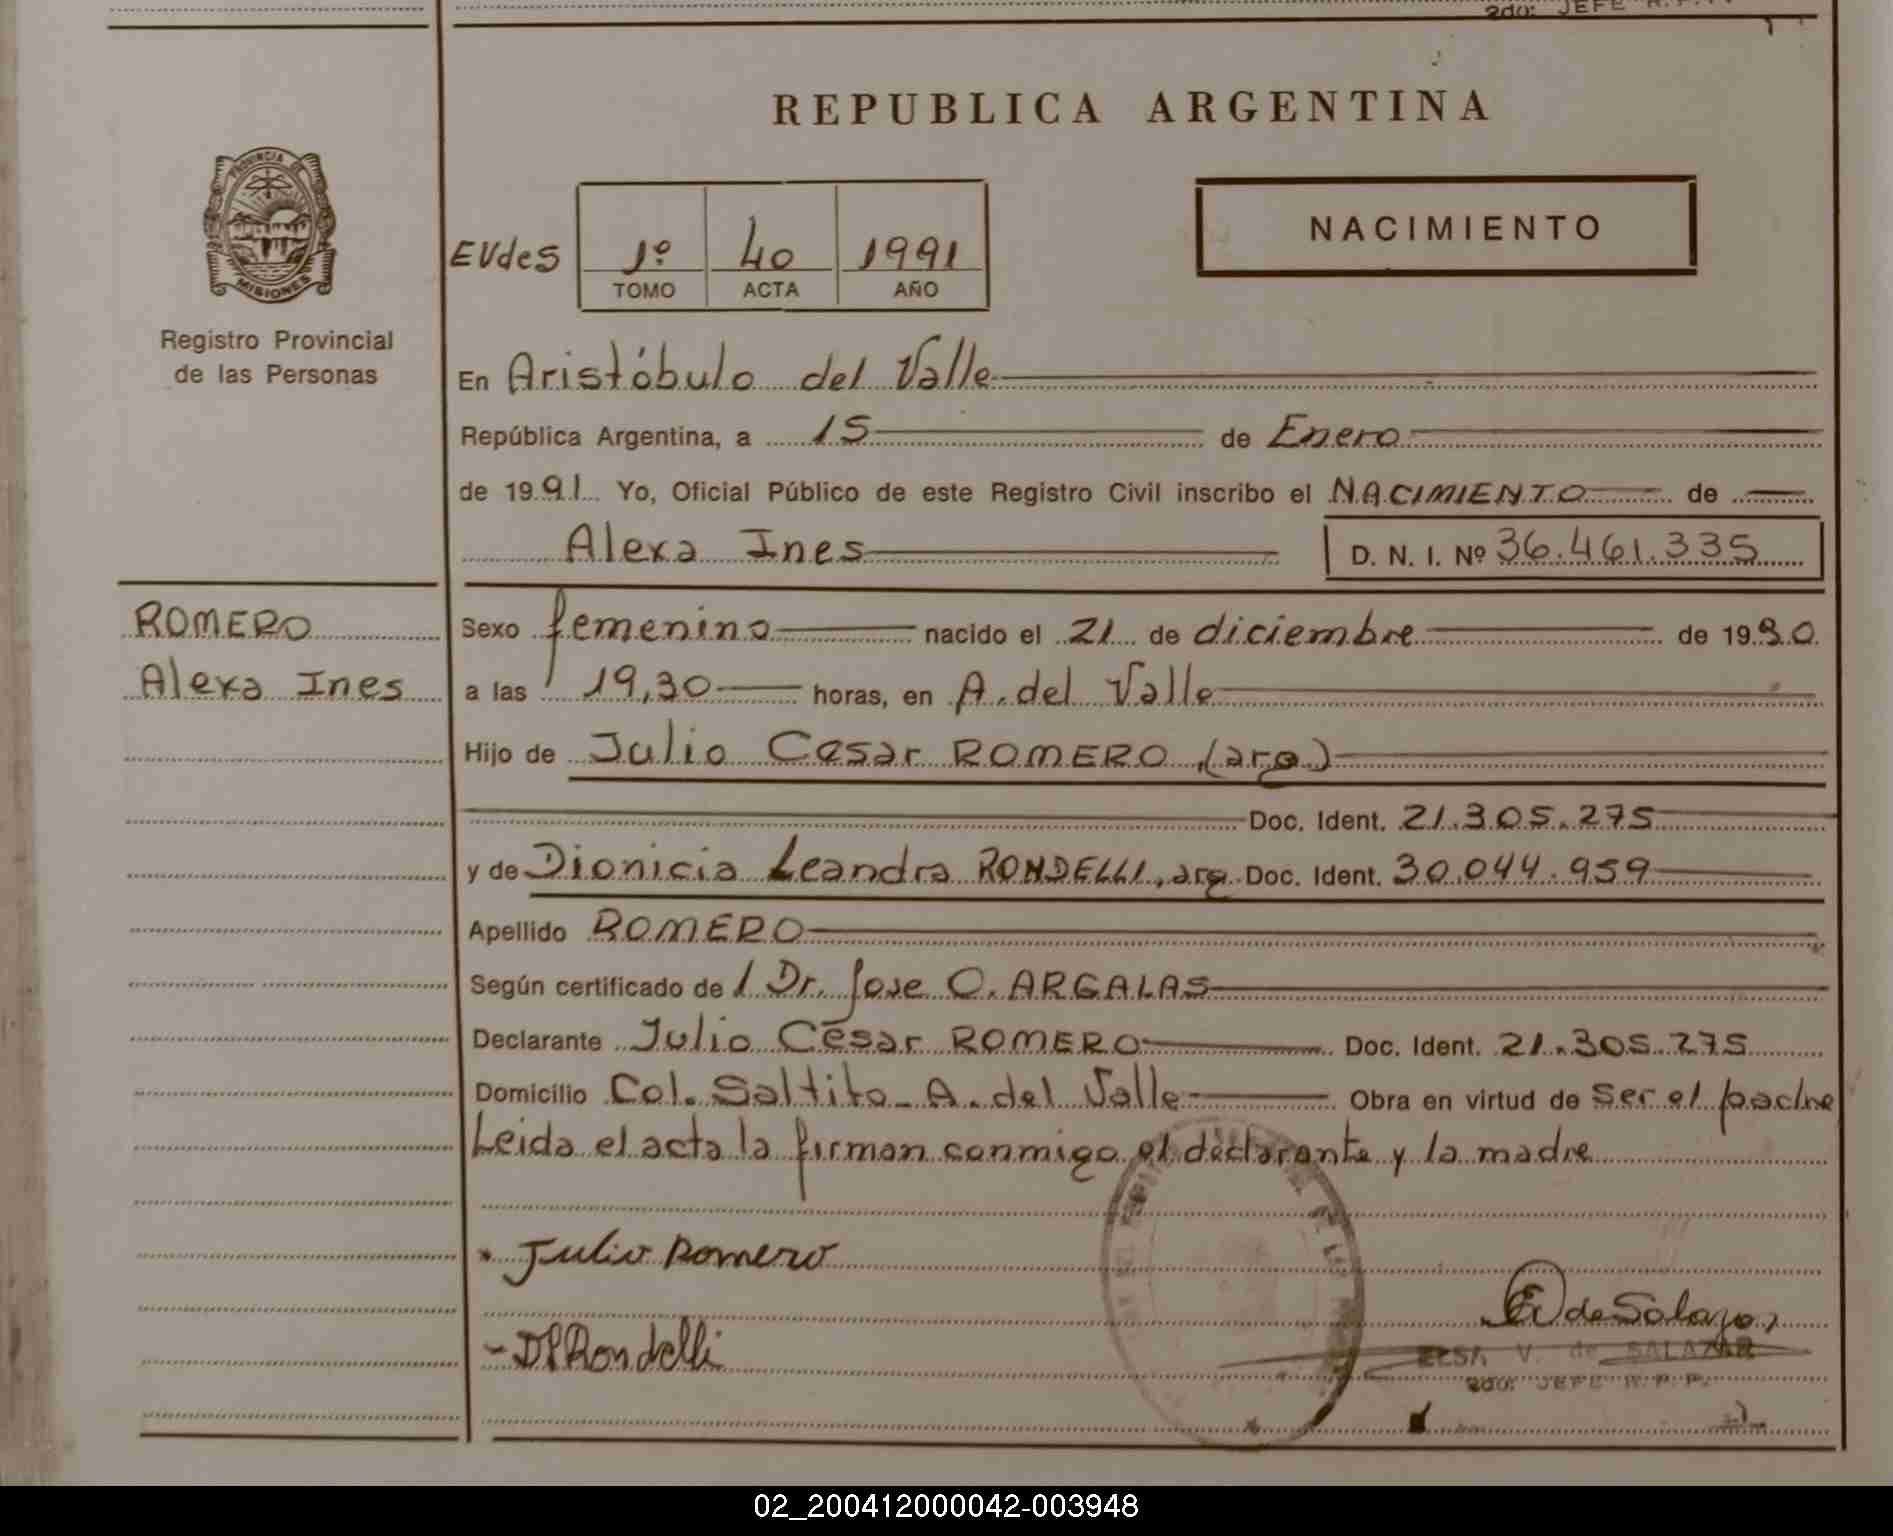 2do: JEFE R.P.P.
REPUBLICA ARGENTINA
PROVINCIA DE
MISIONES
Registro Provincial
de las Personas
EVdes
1º 40 1991
TOMO ACTA AÑO
NACIMIENTO
En Aristóbulo del Valle
República Argentina, a 15 de Enero
de 1991 Yo, Oficial Público de este Registro Civil inscribo el NACIMIENTO de
Alexa Ines D. N. I. Nº 36.461.335
ROMERO
Alexa Ines
Sexo femenino nacido el 21 de diciembre de 1990
a las 19,30 horas, en A. del Valle
Hijo de Julio Cesar ROMERO (arg)
Doc. Ident. 21.305.275
y de Dionicia Leandra RONDELLI, arg. Doc. Ident. 30.044.959
Apellido ROMERO
Según certificado de / Dr. Jose O. ARGALAS
Declarante Julio César ROMERO Doc. Ident. 21.305.275
Domicilio Col. Saltito - A. del Valle Obra en virtud de ser el padre
Leida el acta la firman conmigo el declarante y la madre
Julio Romero
EVdeSalazar
- DLRondelli
ELSA V. de SALAZAR
2do: JEFE R.P.P.
02_200412000042-003948